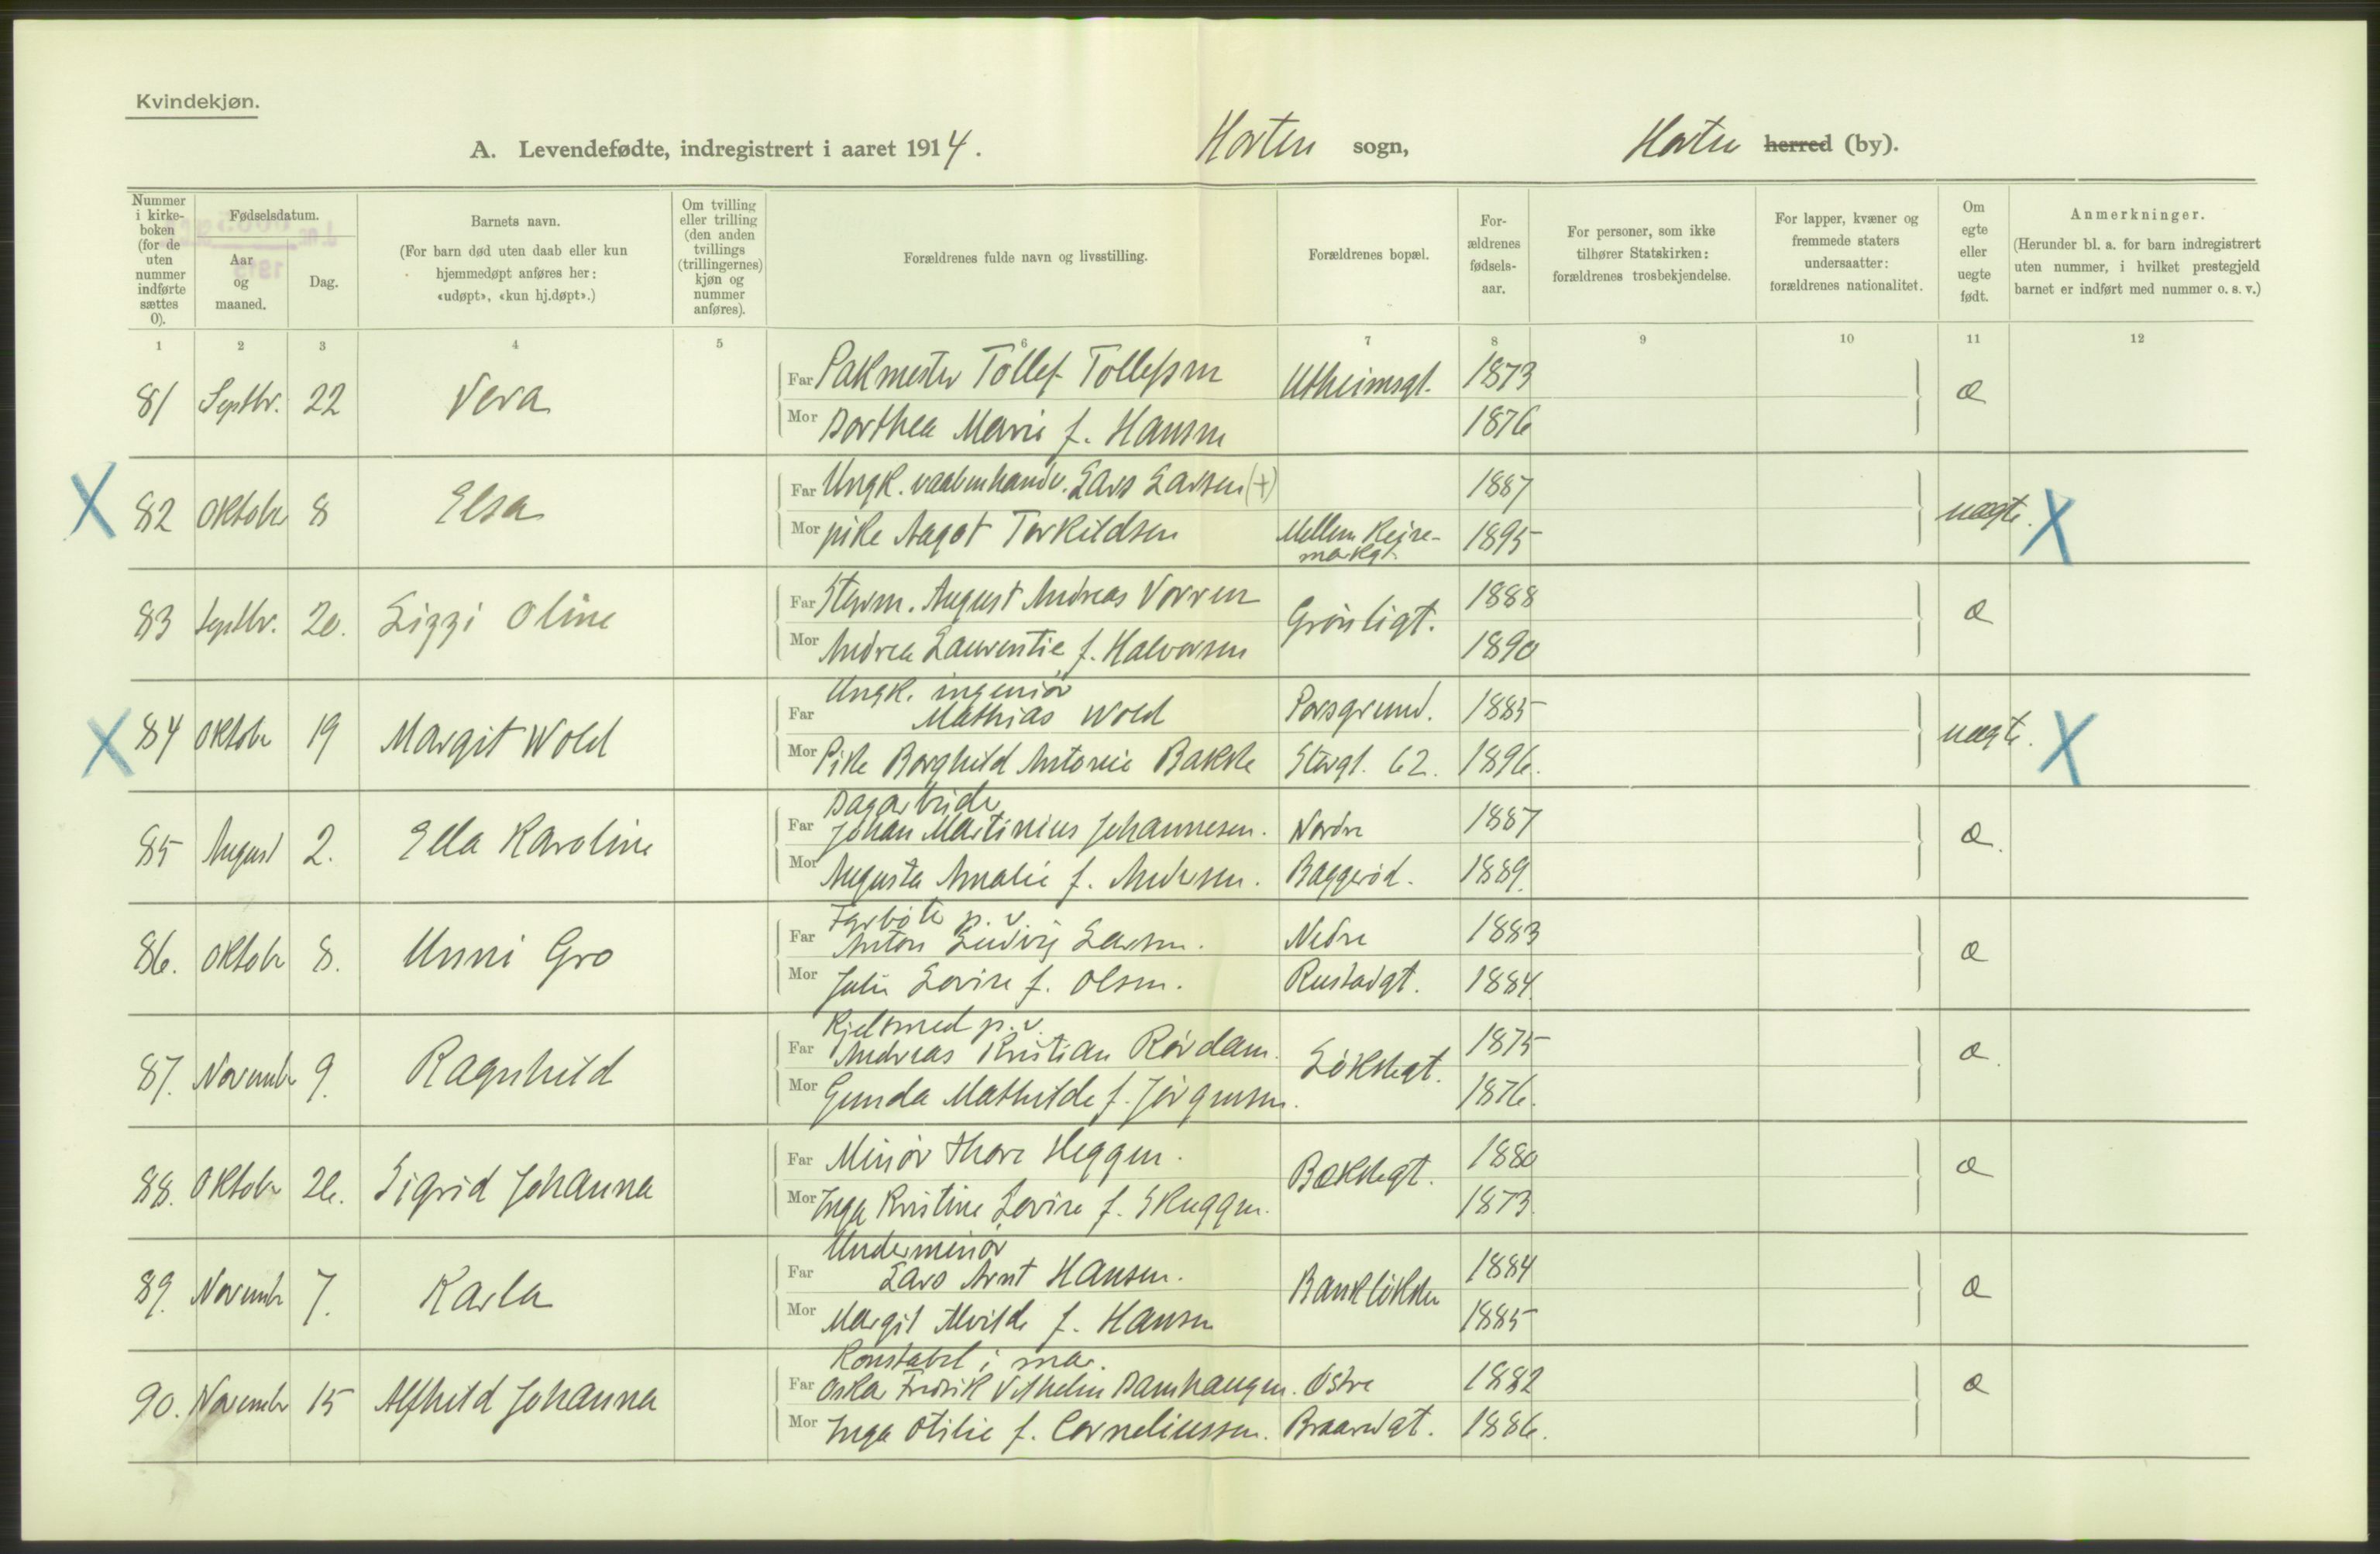 Kvindekjøn.
A. Levendefødte, indregistrert i aaret 1914. Horten sogn, Horten herred (by).
Nummer i kirkeboken (for de uten nummer indførte sættes 0).
Fødselsdatum.
Aar og maaned.
Dag.
Barnets navn.
(For barn død uten daab eller kun hjemmedøpt anføres her: «udøpt», «kun hj.døpt».)
Om tvilling eller trilling (den anden tvillings (trillingernes) kjøn og nummer anføres).
Forældrenes fulde navn og livsstilling.
Forældrenes bopæl.
Forældrenes fødselsaar.
For personer, som ikke tilhører Statskirken: forældrenes trosbekjendelse.
For lapper, kvæner og fremmede staters undersaatter: forældrenes nationalitet.
Om egte eller uegte født.
Anmerkninger.
(Herunder bl. a. for barn indregistrert uten nummer, i hvilket prestegjeld barnet er indført med nummer o. s. v.)
1 2 3 4 5 6 7 8 9 10 11 12
81 Septbr. 22 Vera Far Pakmester Tollef Tollefsen Utheimsgt. 1873 æ
Mor Dorthea Marie f. Hansen 1876
X 82 Oktober 8 Elsa Far Ungk. vaabenhandv. Lars Larsen (+) 1887 uægte. X
Mor pike Aagot Torkildsen Mellem Keisemarkgt. 1895
83 Septbr. 20. Lizzi Oline Far Styrm. August Andreas Vorren Grønligt. 1888 æ
Mor Andrea Laurentie f. Halvorsen 1890
X 84 Oktober 19 Margit Wold Far Ungk. ingeniør
Mathias Wold Porsgrund. 1885 uægte. X
Mor Pike Borghild Antonie Bakke Storgt. 62. 1896.
85 August 2. Ella Karoline Far Dagarbeider
Johan Martinius Johannesen. Nordre 1887 æ.
Mor Augusta Amalie f. Andersen. Baggerød. 1889.
86. Oktober 8. Unni Gro Far Fyrbøter p. v.
Anton Ludvig Larsen. Nedre 1883 æ
Mor Julie Lovise f. Olsen. Rustadgt. 1884.
87. November 9. Ragnhild Far Kjelsmed p. v.
Andreas Kristian Rørdam. Løkkegt. 1875 æ.
Mor Gunda Mathilde f. Jørgensen. 1876.
88. Oktober 26. Sigrid Johanna Far Minør Thore Heggen. Bækkegt. 1880 æ
Mor Inga Kristine Lovise f. Skuggen. 1873.
89. November 7. Karla Far Underminør
Lars Arnt Hansen. Bankløkken 1884 æ
Mor Margit Alvilde f. Hansen 1885
90. November 15 Alfhild Johanna Far Konstabel i mar.
Oskar Fredrik Vilhelm Damhaugen. Østre 1882 æ
Mor Inga Otilie f. Corneliussen. Braarudgt. 1886.